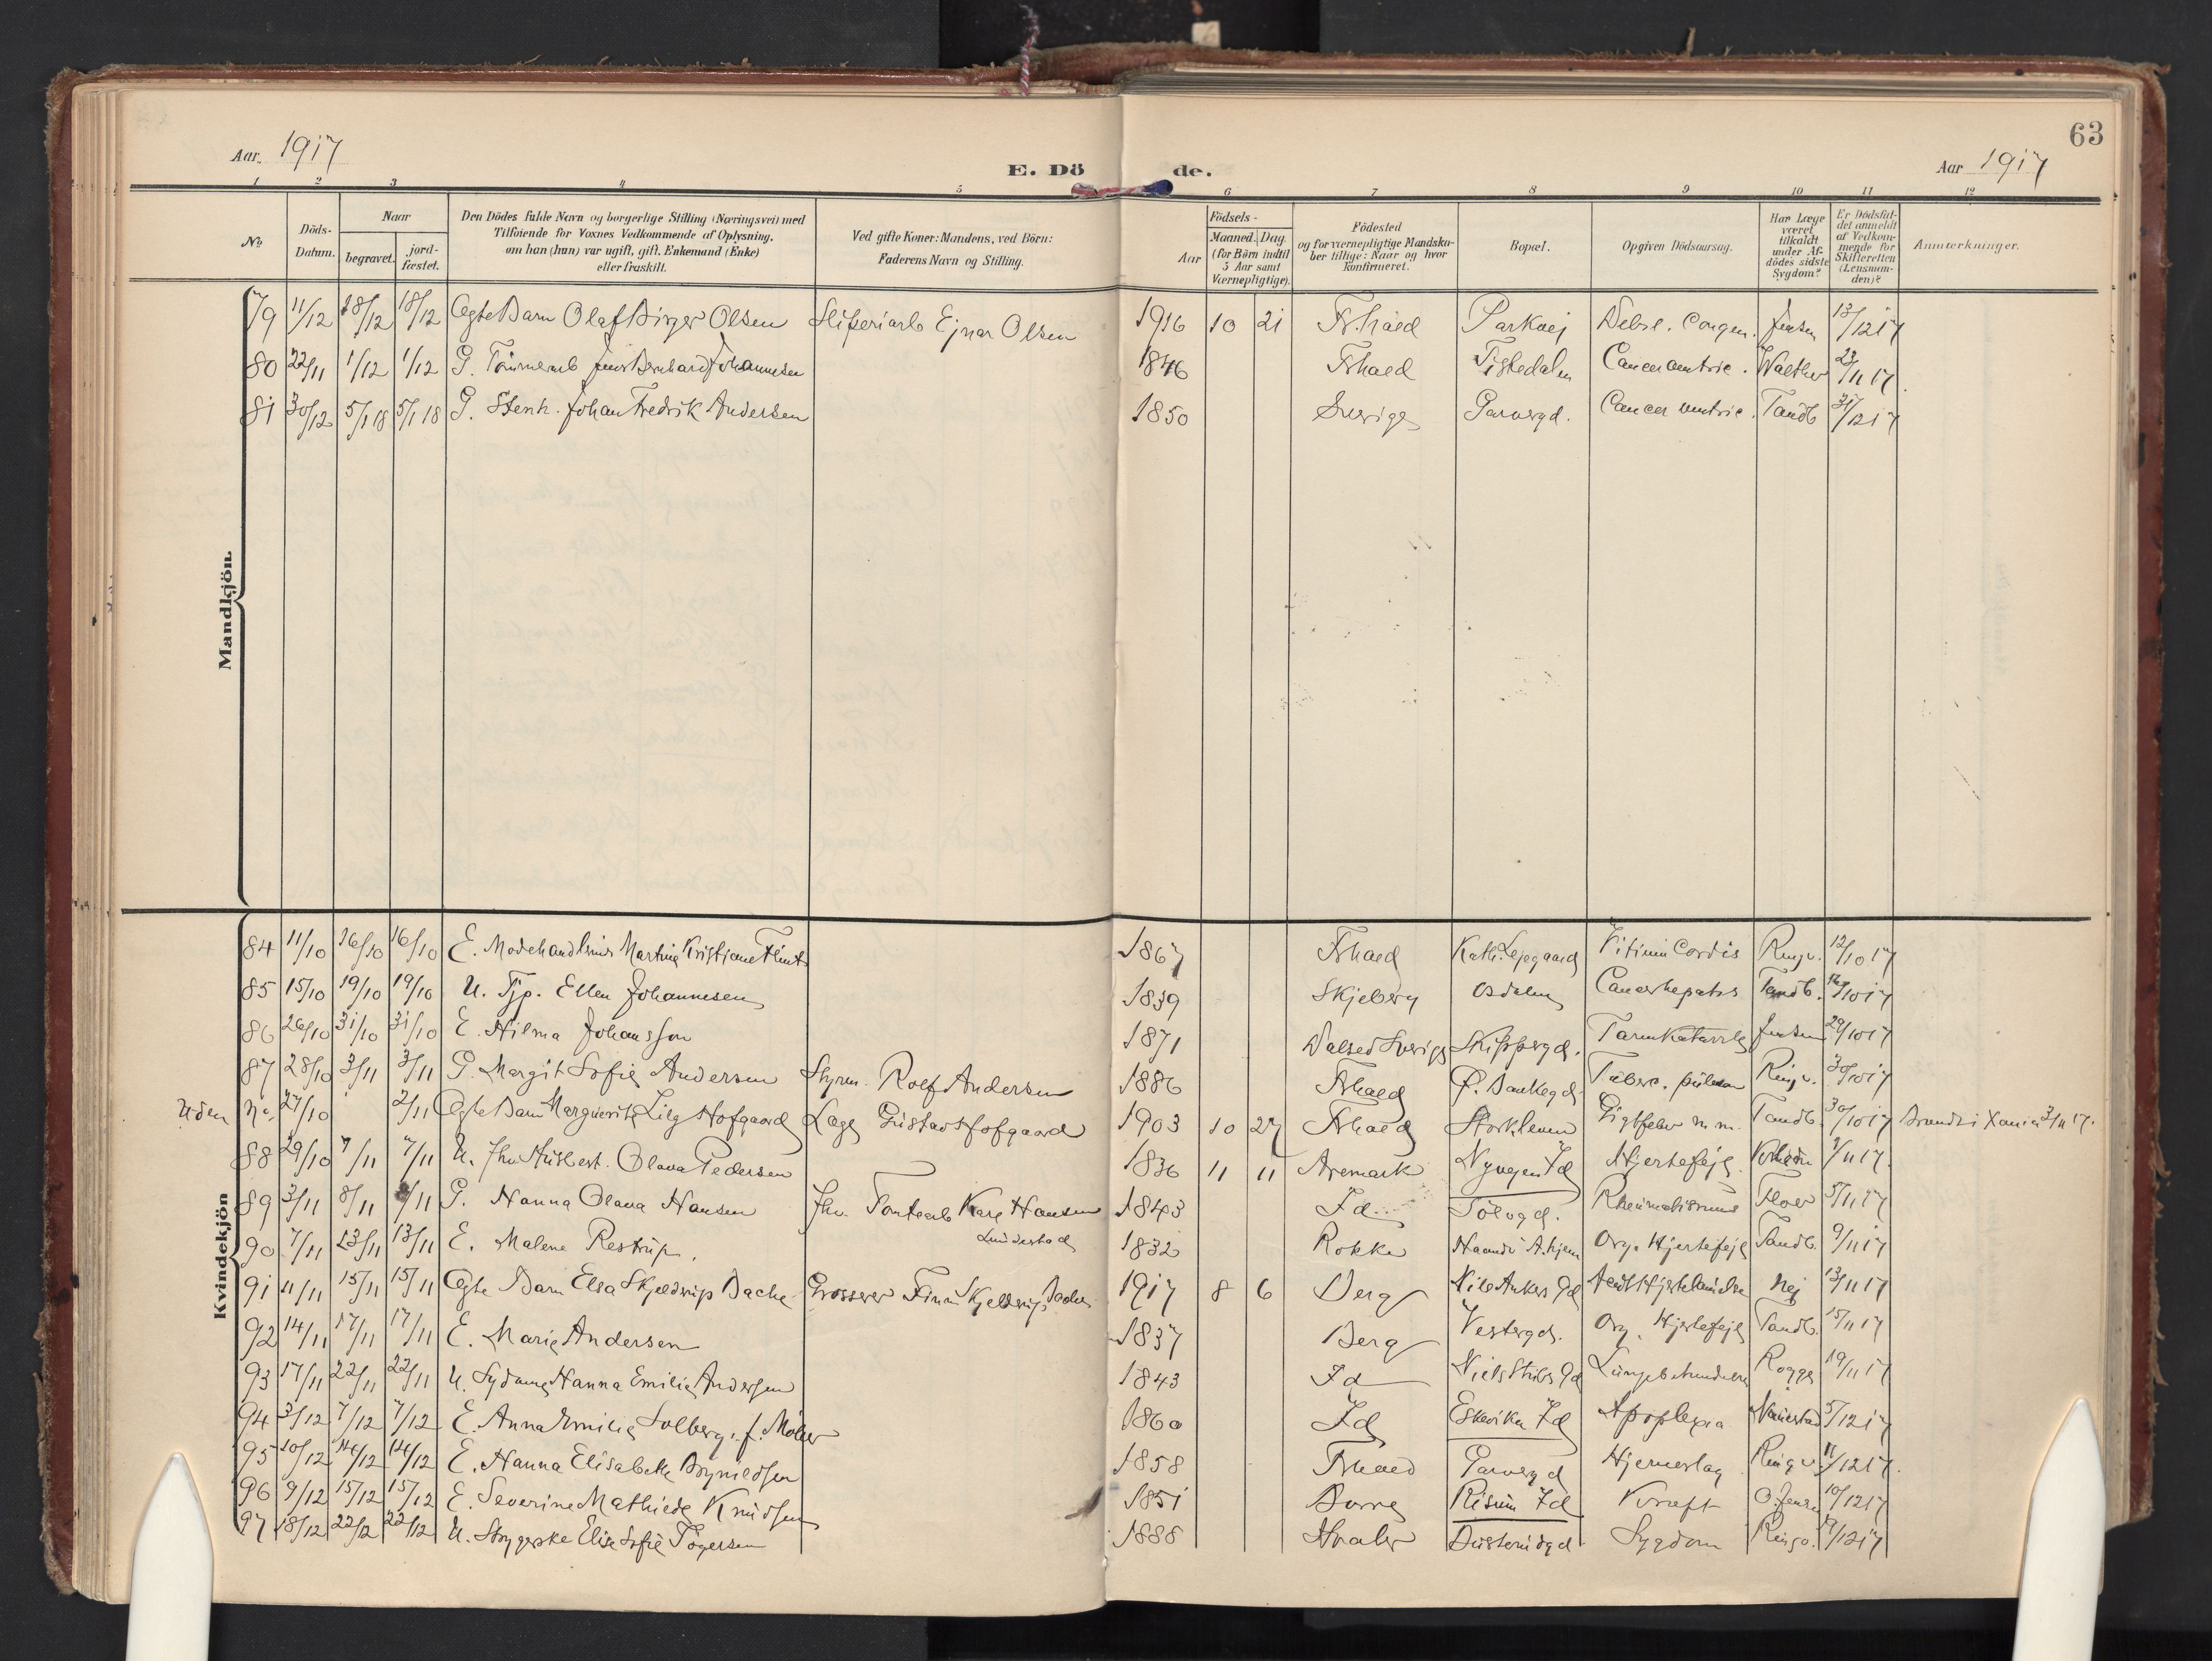 63
Aar. 1917 E. Dö de. Aar 1917
1 2 3 4 5 6 7 8 9 10 11 12
No
Döds-Datum.
Naar
begravet.
jord-fæstet.
Den Dödes fulde Navn og borgerlige Stilling (Næringsvei) med
Tilföiende for Voxnes Vedkommende af Oplysning,
om han (hun) var ugift, gift, Enkemand (Enke)
eller fraskilt.
Ved gifte Koner: Mandens, ved Börn:
Faderens Navn og Stilling.
Födsels-
Aar
Maaned. Dag.
(for Börn indtil
5 Aar samt
Værnepligtige).
Födested
og for værnepligtige Mandska-
ber tillige: Naar og hvor
konfirmeret.
Bopæl.
Opgiven Dödsaarsag.
Har Læge
været
tilkaldt
under Af-
dödes sidste
Sygdom?
Er Dödsfal-
det anmeldt
af Vedkom-
mende for
Skifteretten
(Lensman-
den)?
Anmærkninger.
Mandkjön.
79 11/12 18/12 18/12 Ægte Barn Olaf Birger Olsen Sliperiarb Ejnar Olsen 1916 10 21 Fr.hald Parkvej Debil. Congen. Jensen 13/12 17
80 22/11 1/12 1/12 G. Tömmerarb Jens Bernhard Johannesen 1846 Frhald Tistedalen Cancer ventric. Walther 23/11 17
81 30/12 5/1 18 5/1 18 G. Stenh. Johan Fredrik Andersen 1850 Sverige Garvergd. Cancer ventric. Tandb 31/12 17
Kvindekjön
84 11/10 16/10 16/10 E. Modehandlerinde Martine Kristiane Flint 1867 Frhald Kath. Lejegaard Vitium Cordis Ringv. 12/10 17
85 15/10 19/10 19/10 U. Tjp. Ellen Johannesen 1839 Skjeberg Osdalen Cancer hepatis Tandb. 10 17
86 26/10 31/10 31/10 E. Hilma Johansson 1871 Dalsed Sverige Skippergd. Tarmkatarrh Jensen 29/10 17
87 28/10 3/11 3/11 G. Margit Sofie Andersen Styrm. Rolf Andersen 1886 Frhald P. Bankegd. Tuberc. pulmon Ringv. 30/10 17
Uden No. 27/10 2/11 Ægte Barn Marguerite Lily Hofgaard Læge Gustav Hofgaard 1903 10 27 Frhald Storkleven Gigtfeber m.m. Tandb. 30/10 17 Brændt i Xania 3/11 17.
88 29/10 7/11 7/11 U. Fhv Husbest. Olava Pedersen 1836 11 11 Aremark Nyvegen Id Hjertefejl 11 17.
89 3/11 8/11 8/11 G. Hanna Olava Hansen Fhv. Tomtearb Karl Hansen 1843 Id Tölvgd. Rheumatismus Floer 5/11 17
Lundestad
90 7/11 13/11 13/11 E. Malene Restrup. 1832 Rokke Haandv A.hjem Org. Hjertefejl Tandb. 9/11 17
91 11/11 15/11 15/11 Ægte Barn Elsa Skjeldrup Bache Grosserer Finn Kjeldrup Bache 1917 8 6 Berg Nils Ankers Gd Nej 13/11 17
92 14/11 17/11 17/11 E. Marie Andersen 1837 Berg Vestergd. Org. Hjertefejl Tandb. 15/11 17
93 17/11 22/11 22/11 U. Sydame Hanna Emilie Andersen 1843 Id Niels Stubs Gd Lungebetændelse Rogge 19/11 17
94 3/12 7/12 7/12 E. Anna Emilie Solberg, f. Möller 1860 Id Eskevika Id Apoplexia 5/12 17
95 10/12 14/12 14/12 E. Hanna Elisabeth Brynildsen 1858 Frhald Garvergd Hjerneslag Ringv. 11/12 17.
96 9/12 15/12 15/12 E. Severine Mathilde Knudsen 1851 Borre Risum Id Kræft O. Jensen 10/12 17
97 18/12 22/12 22/12 U. Strygerske Elise Sofie Togersen 1888 Hvaler Sygdom Ringv. 12 17